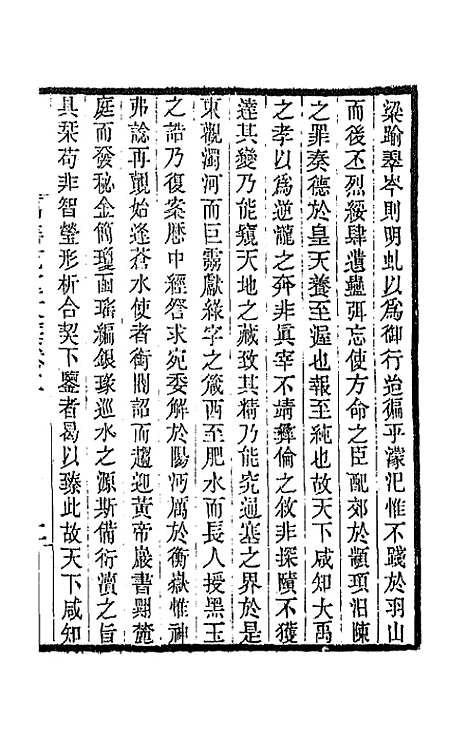 梁踰翠岑則明虬以爲御行迨徧乎濛汜惟不踐於羽山
而後丕烈綏肆遺蠱弭忘使方命之臣配郊於顓頊汨陳
之罪奏德於皇天養至渥也報至純也故天下咸知大禹
之孝以爲逆龍之奔非眞宰不靖彝倫之敘非探賾不獲
達其變乃能窺天地之藏致其精乃能究通塞之界於是
東觀濁河而巨靈獻綠字之箴西至肥水而長人授黑玉
之誥乃復案歷中經咨求宛委解於陽河厲於衡嶽惟神
弗諗再覲始逢蒼水使者衛閽詔而趨迎黃帝嚴書闢麓
庭而發秘金簡瓊函瑤編銀瑑巡水之源斯備衍瀆之旨
具琹苟非智瑩形析合契下鑒者曷以臻此故天下咸知